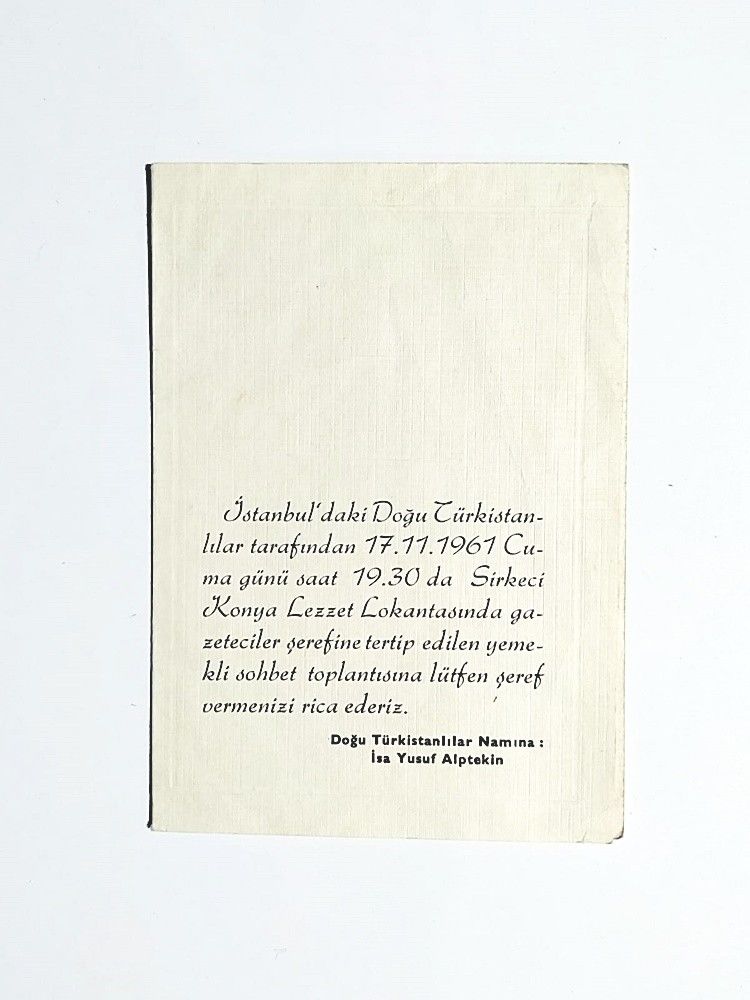 İstanbul'daki Doğu Türkistan-
lılar tarafından 17.11.1961 Cu-
ma günü saat 19.30 da Sirkeci
Konya Lezzet Lokantasında ga-
zeteciler şerefine tertip edilen yeme-
kli sohbet toplantısına lütfen şeref
vermenizi rica ederiz.
Doğu Türkistanlılar Namına :
İsa Yusuf Alptekin